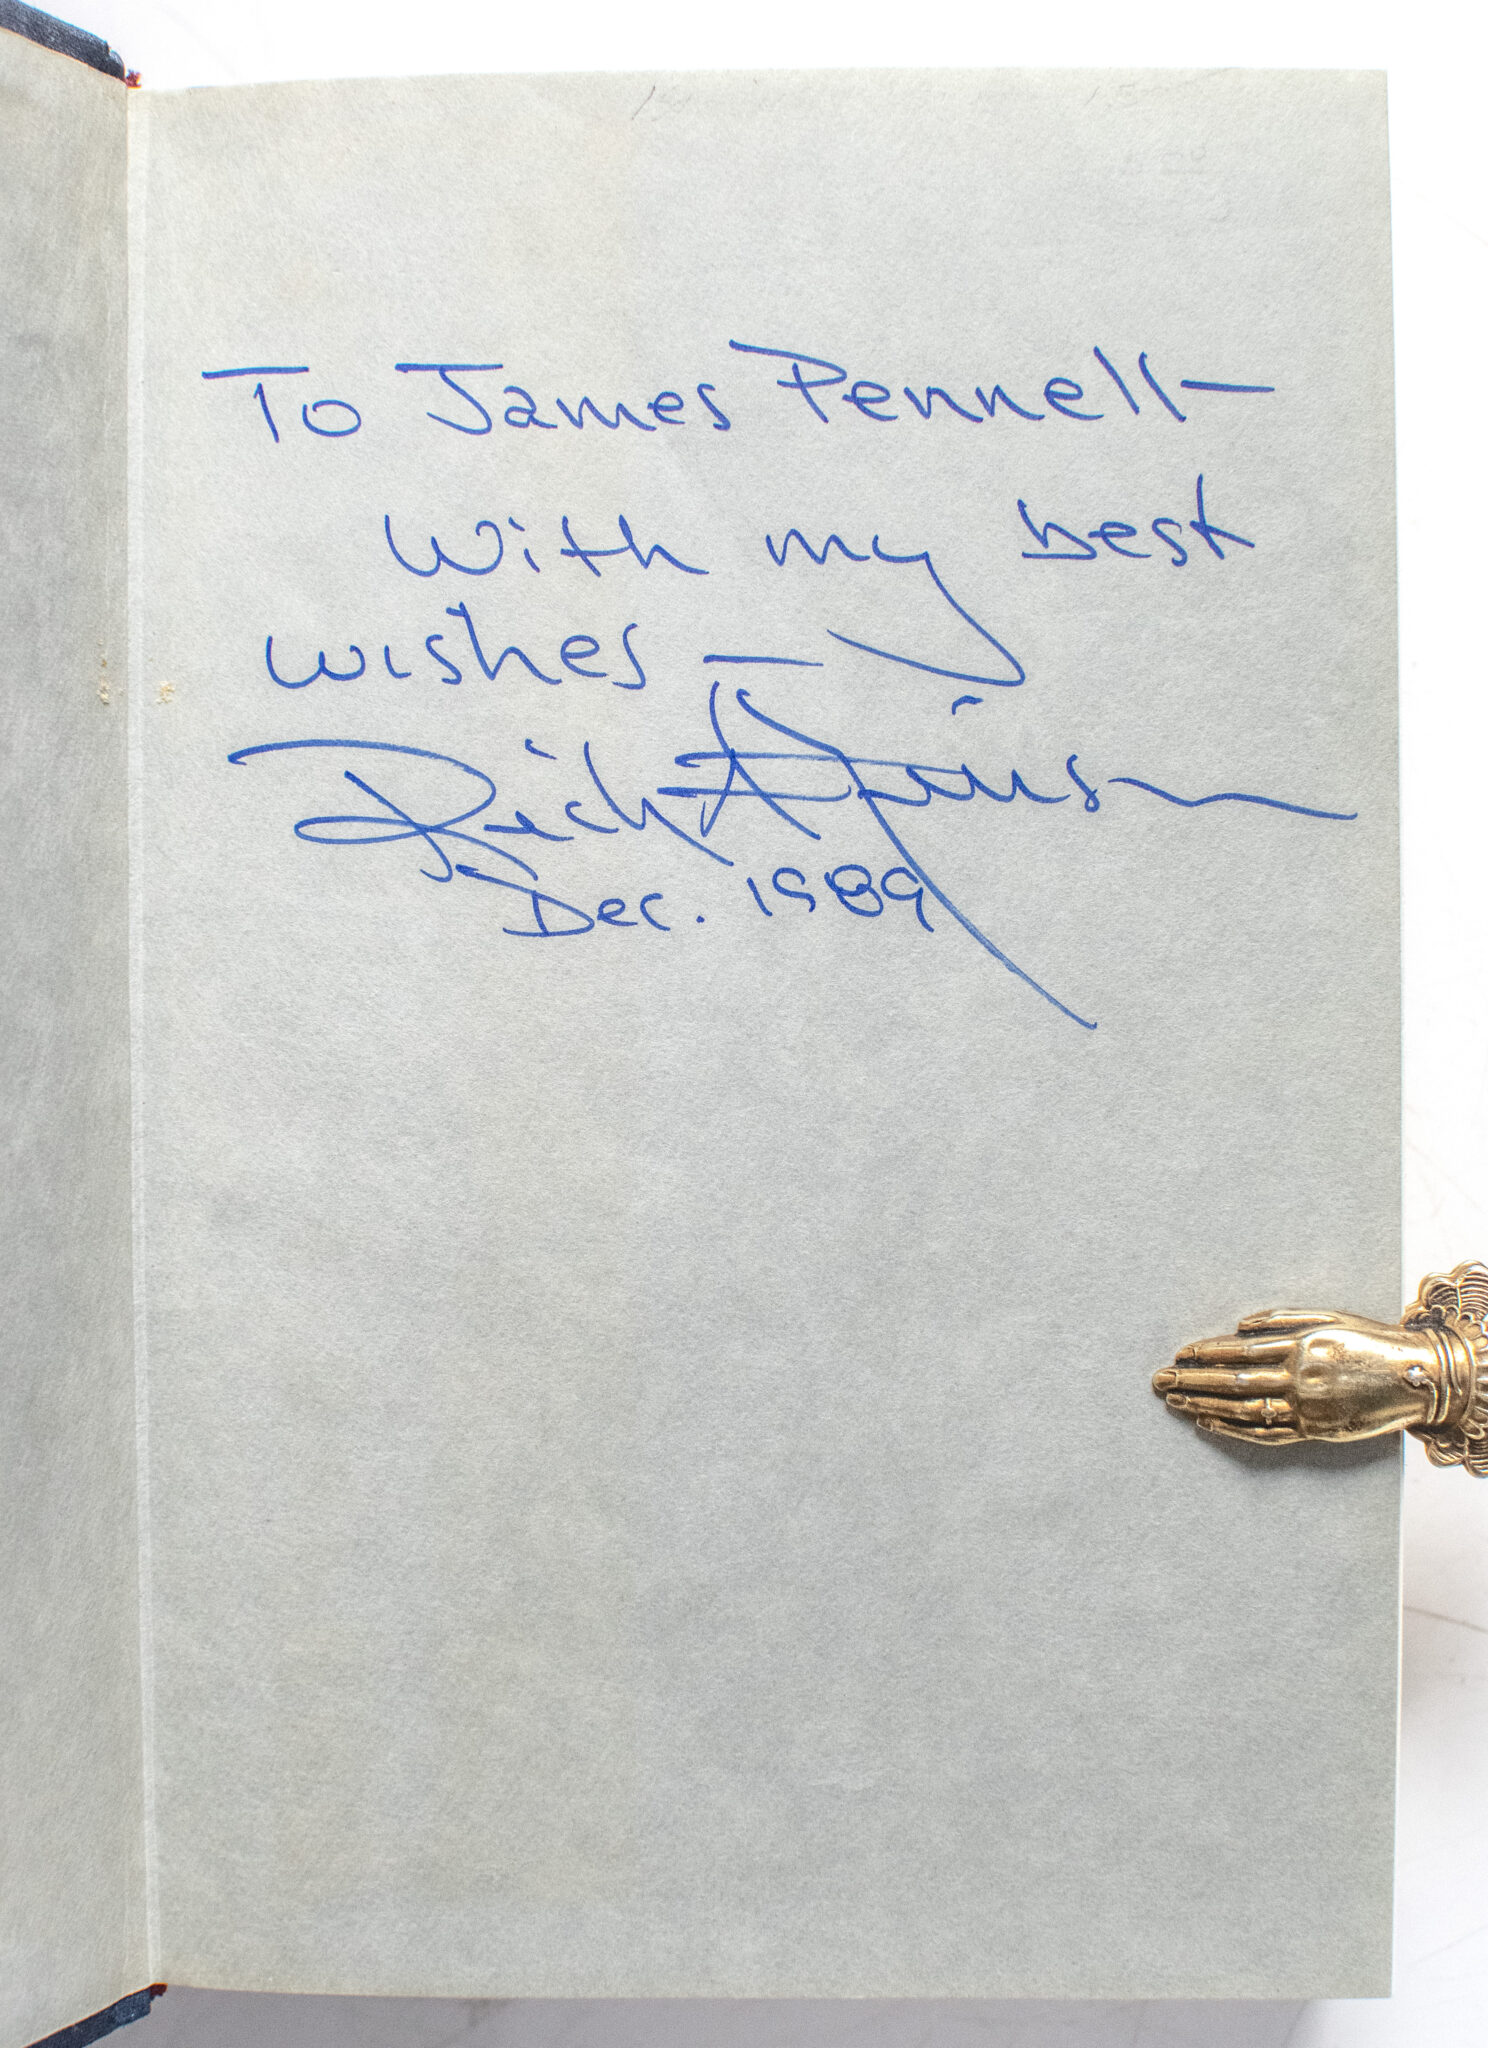 To James Pennell—
With my best
wishes—
Rick Atkinson
Dec. 1989